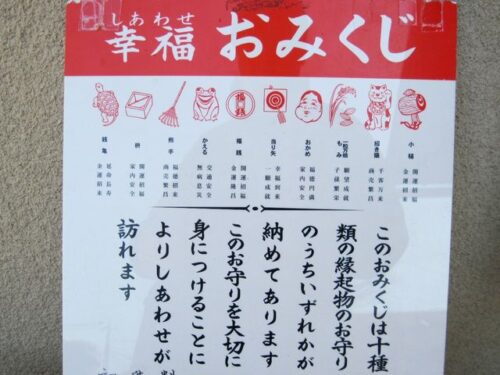 しあわせ
幸福おみくじ
福銭
小槌
開運招福
金運招来
招き猫
千客万来
商売繁昌
一粒万倍
もみ
願望成就
子孫繁栄
おかめ
福徳円満
家内安全
当り矢
幸福到来
一願成就
福銭
開運招福
金運隆昌
かえる
交通安全
無病息災
熊手
福徳招来
商売繁昌
枡
開運招福
家内安全
銭亀
延命長寿
金運招来
このおみくじは十種
類の縁起物のお守り
のうちいずれかが
納めてあります
このお守りを大切に
身につけることに
よりしあわせが
訪れます